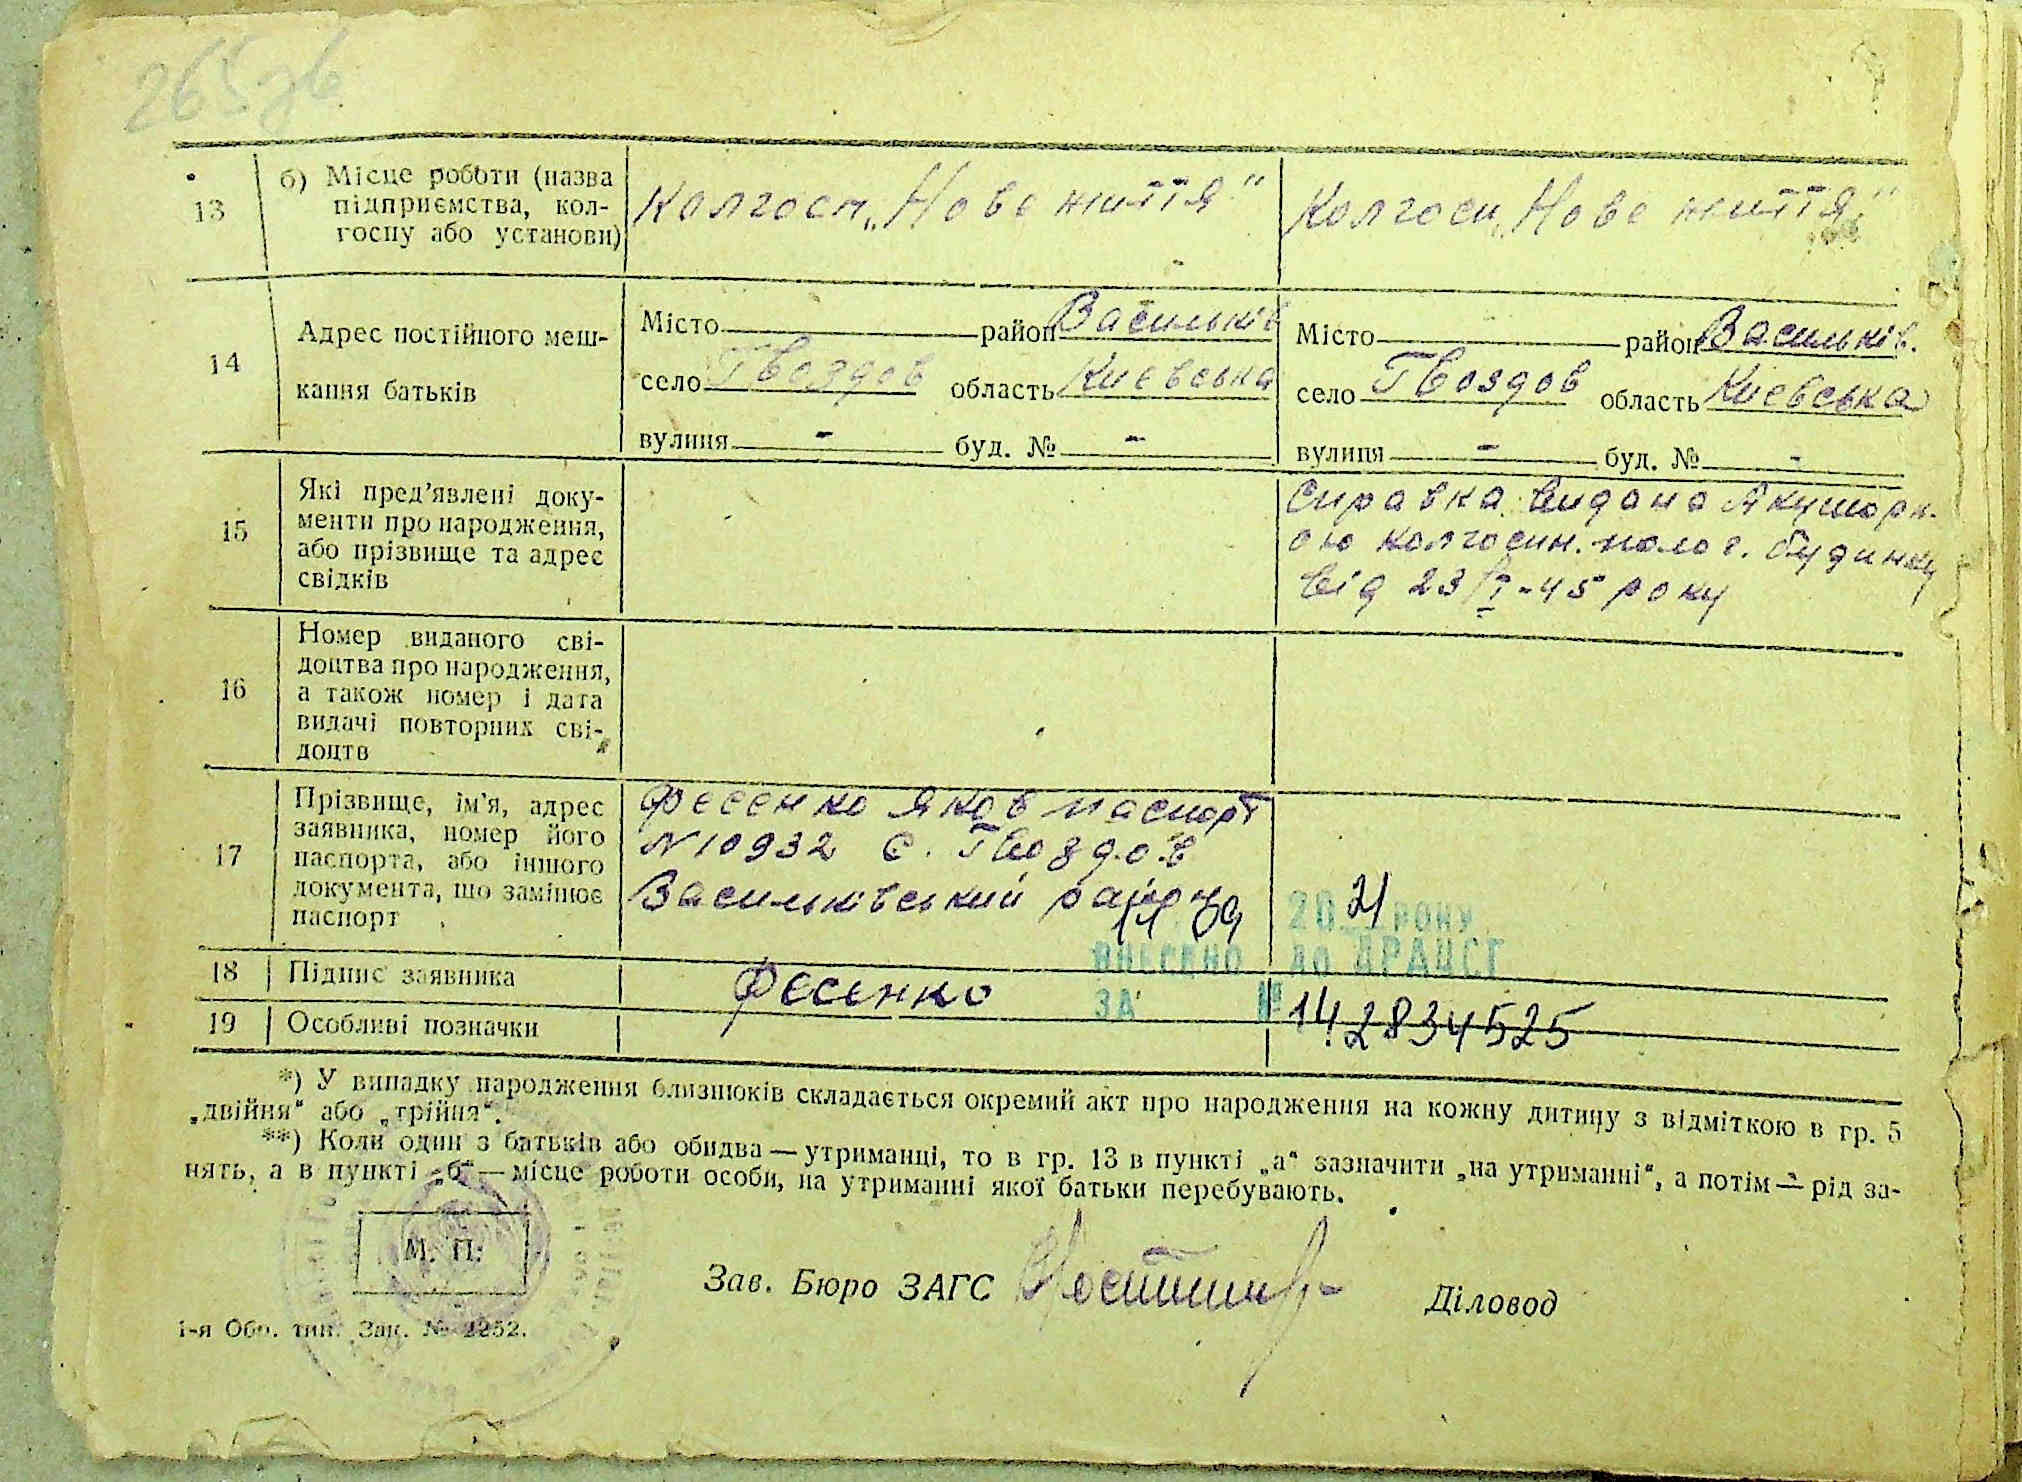 265 зв
13 б) Місце роботи (назва підприємства, колгоспу або установи) Колгосп „Нове життя" Колгосп „Нове життя"
14 Адрес постійного мешкання батьків
Місто район Васильків Місто район Васильків.
село Гвоздов область Киевська село Гвоздов область Киевська
вулиця - буд. № - вулиця - буд. № -
15 Які пред'явлені документи про народження, або прізвище та адрес свідків
Справка видана Акушорк.
ою колгоспн. полог. будинку
від 23/I-45 року
16 Номер виданого свідоцтва про народження, а також номер і дата видачі повторних свідоцтв
17 Прізвище, ім'я, адрес заявника, номер його паспорта, або іншого документа, що замінює паспорт
Фесенко Яков паспорт
N 10932 с. Гвоздов
Васильківський район
2021 РОКУ
ВНЕСЕНО до ДРАЦСГ
18 Підпис заявника Фесенко
ЗА № 14 2834525
19 Особливі позначки
*) У випадку народження близнюків складається окремий акт про народження на кожну дитину з відміткою в гр. 5
„двійня" або „трійня".
**) Коли один з батьків або обидва — утриманці, то в гр. 13 в пункті „а" зазначити „на утриманні", а потім — рід за-
нять, а в пункті „б" — місце роботи особи, на утриманні якої батьки перебувають.
М. П.
Зав. Бюро ЗАГС Діловод
1-я Обр. тип. Зак. № 2252.